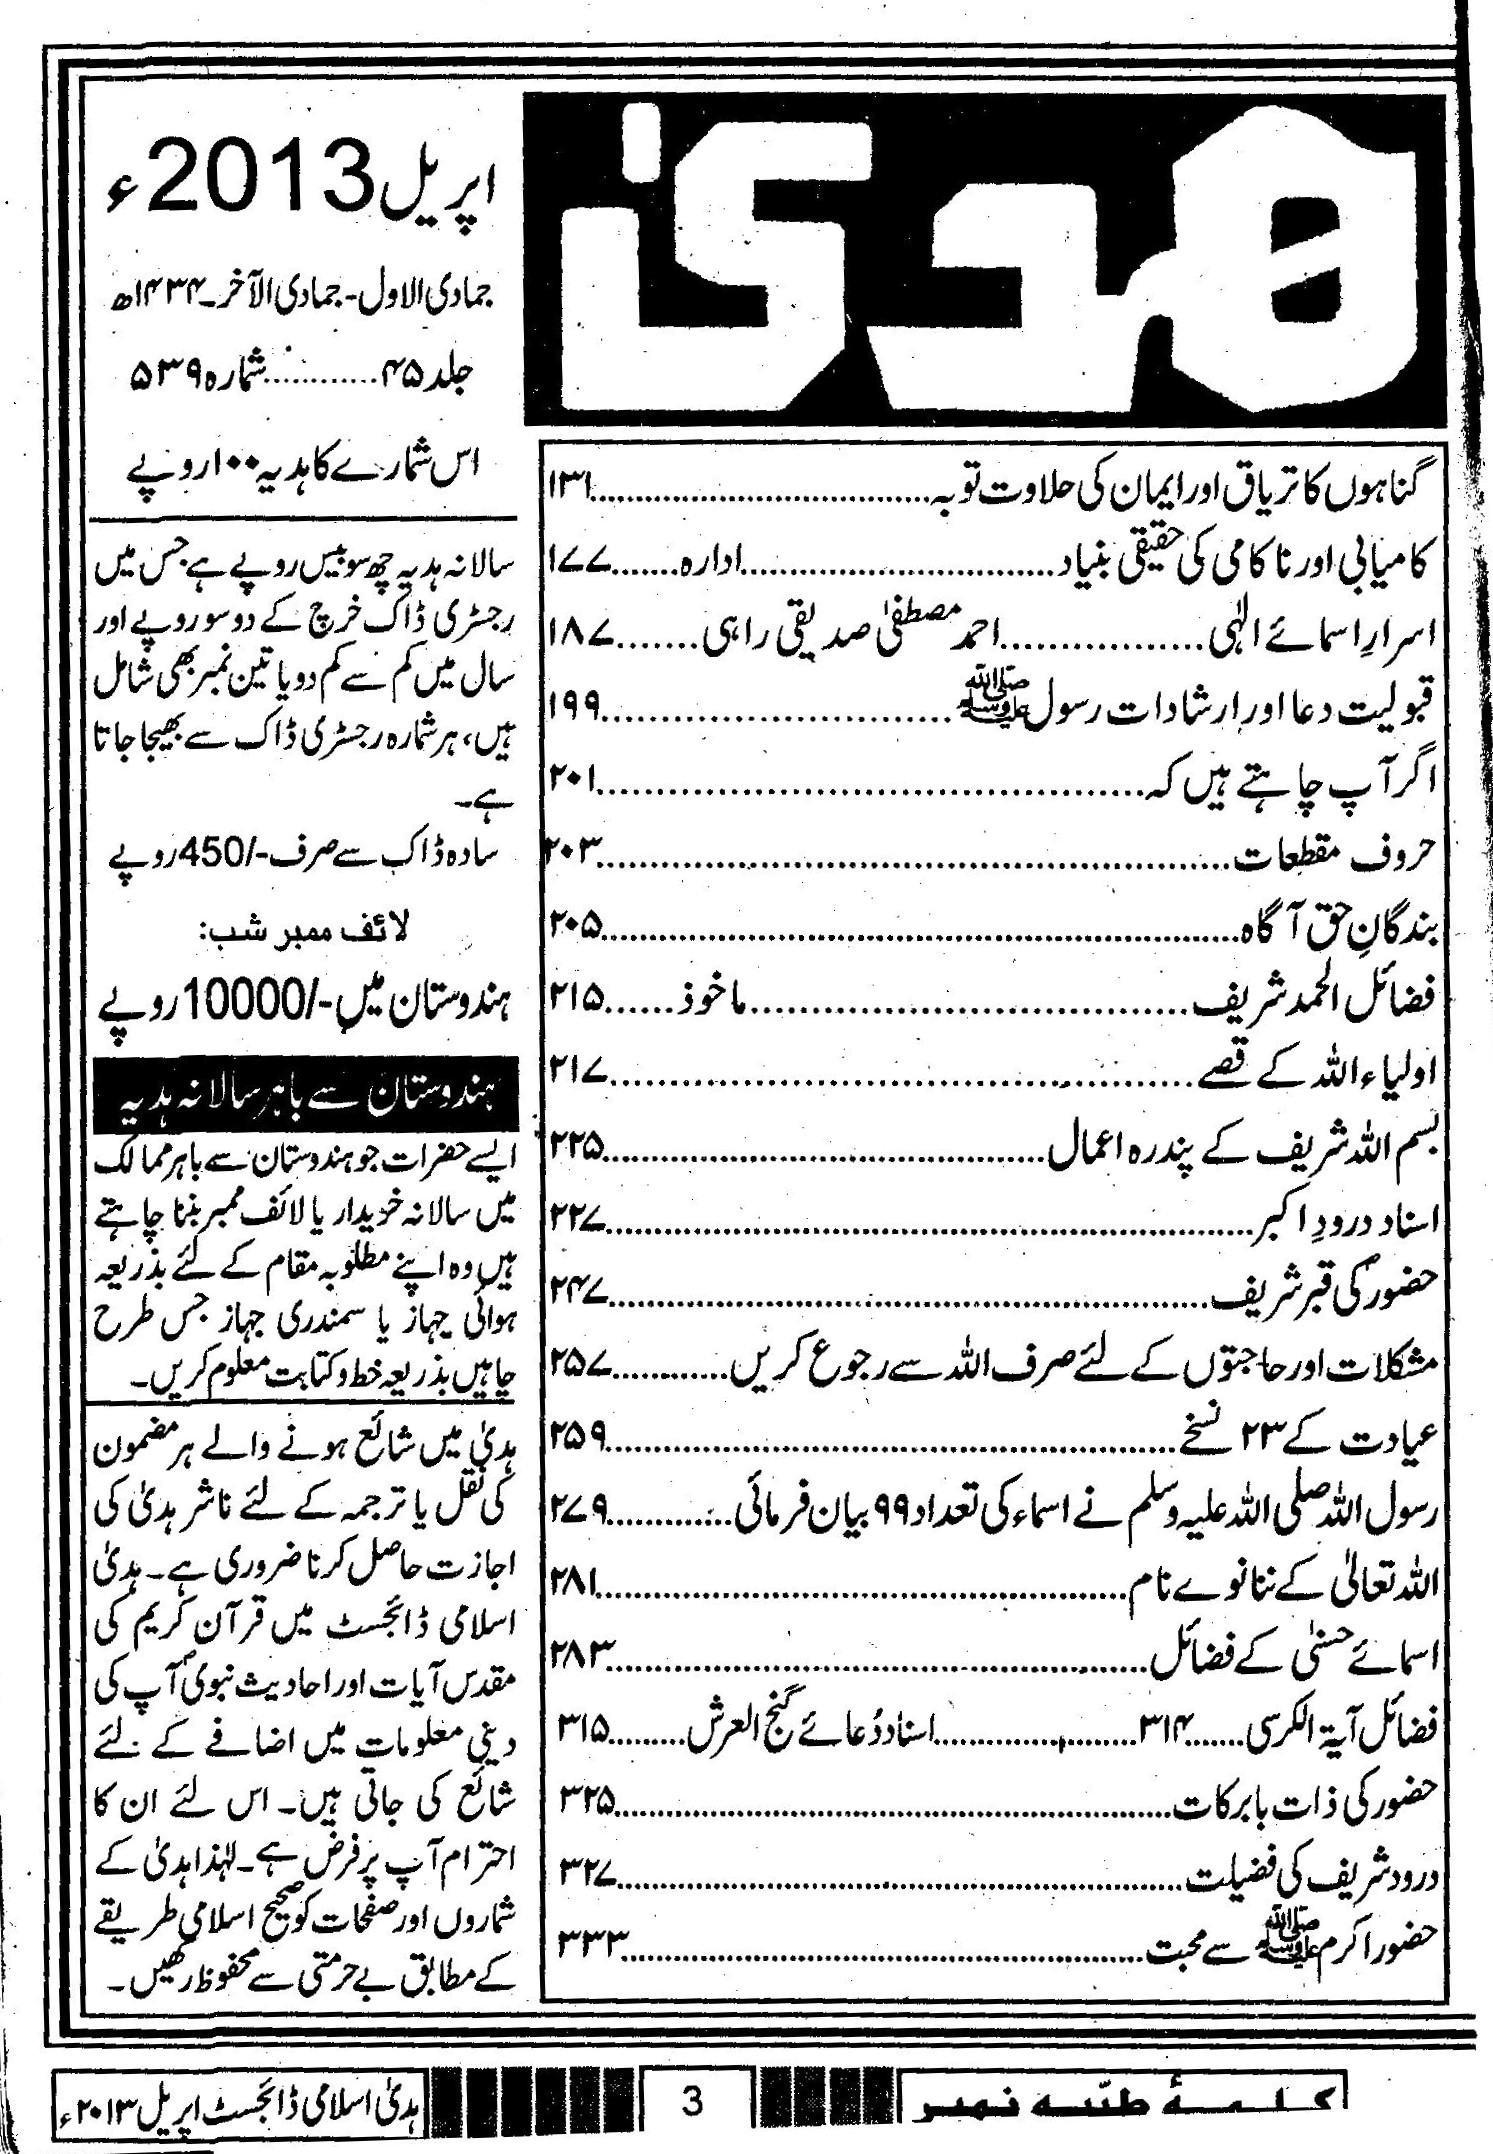 ھدیٰ
اپریل 2013ء
جمادی الاول - جمادی الآخر ـ ۱۴۳۴ھ
جلد ۴۵............شمارہ ۵۳۹
اس شمارے کا ہدیہ ۱۰۰ روپے
سالانہ ہدیہ چھ سو بیس روپے ہے جس میں
رجسٹری ڈاک خرچ کے دو سو روپے اور
سال میں کم سے کم دو یا تین نمبر بھی شامل
ہیں، ہر شمارہ رجسٹری ڈاک سے بھیجا جاتا
ہے۔
سادہ ڈاک سے صرف -/450 روپے
لائف ممبر شب:
ہندوستان میں -/10000 روپے
ہندوستان سے باہر سالانہ ہدیہ
ایسے حضرات جو ہندوستان سے باہر ممالک
میں سالانہ خریدار یا لائف ممبر بننا چاہتے
ہیں وہ اپنے مطلوبہ مقام کے لئے بذریعہ
ہوائی جہاز یا سمندری جہاز جس طرح
چاہیں بذریعہ خط و کتابت معلوم کریں۔
ہدیٰ میں شائع ہونے والے ہر مضمون
کی نقل یا ترجمہ کے لئے ناشر ہدیٰ کی
اجازت حاصل کرنا ضروری ہے۔ ہدیٰ
اسلامی ڈائجسٹ میں قرآن کریم کی
مقدس آیات اور احادیث نبویؐ آپ کی
دینی معلومات میں اضافے کے لئے
شائع کی جاتی ہیں۔ اس لئے ان کا
احترام آپ پر فرض ہے۔ لہٰذا ہدیٰ کے
شماروں اور صفحات کو صحیح اسلامی طریقے
کے مطابق بے حرمتی سے محفوظ رکھیں۔
گناہوں کا تریاق اور ایمان کی حلاوت توبہ..........۱۳۱
کامیابی اور ناکامی کی حقیقی بنیاد..........ادارہ.......۱۷۷
اسرارِ اسمائے الٰہی..........احمد مصطفیٰ صدیقی راہی.......۱۸۷
قبولیت دعا اور ارشادات رسول ﷺ..........۱۹۹
اگر آپ چاہتے ہیں کہ..........۲۰۱
حروف مقطعات..........۲۰۳
بندگانِ حق آگاہ..........۲۰۵
فضائل الحمد شریف..........ماخوذ.......۲۱۵
اولیاء اللہ کے قصے..........۲۱۷
بسم اللہ شریف کے پندرہ اعمال..........۲۲۵
اسناد درودِ اکبر..........۲۲۷
حضورؐ کی قبر شریف..........۲۴۷
مشکلات اور حاجتوں کے لئے صرف اللہ سے رجوع کریں..........۲۵۷
عیادت کے ۲۳ نسخے..........۲۵۹
رسول اللہ صلی اللہ علیہ وسلم نے اسماء کی تعداد ۹۹ بیان فرمائی..........۲۷۹
اللہ تعالیٰ کے ننانوے نام..........۲۸۱
اسمائے حسنیٰ کے فضائل..........۲۸۳
فضائل آیۃ الکرسی.......۳۱۴..........اسناد دُعائے گنج العرش.......۳۱۵
حضور کی ذات بابرکات..........۳۲۵
درود شریف کی فضیلت..........۳۲۷
حضور اکرم ﷺ سے محبت..........۳۳۳
کلمۂ طیّبہ نمبر
3
ہدیٰ اسلامی ڈائجسٹ اپریل ۲۰۱۳ء